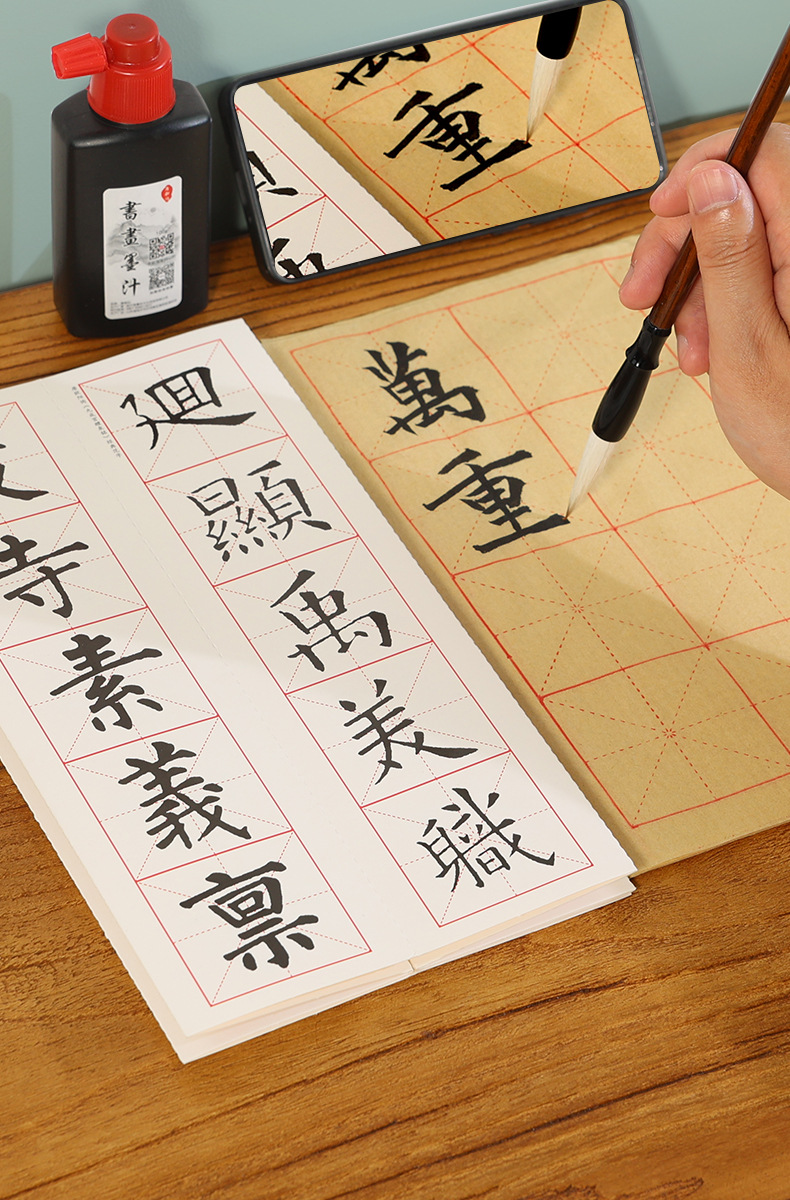 書畫墨汁
重
萬重
廻顯禹美軄
寺素義禀